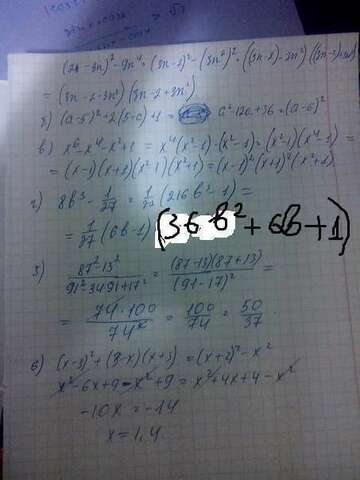 (2 - 3n)² - 9n⁴ = (3n - 2)² - (3n²)² = (3n - 2 - 3n²)
= (3n - 2 - 3n²)(3n - 2 + 3n²)
(a - 5)² + 2(5 - a) + 1 = a² - 12a + 36 = (a - 6)²
в) x⁶ - x⁴ - x² + 1 = x⁴(x² - 1) - (x² - 1) = (x² - 1)(x⁴ - 1) =
= (x - 1)(x + 1)(x² - 1)(x² + 1) = (x - 1)²(x + 1)²(x² + 1)
г) 8b³ - 1/27 = 1/27 (216b³ - 1) =
= 1/27 (6b - 1) (36b² + 6b + 1)
(87² - 13²)/(91² - 34·91 + 17²) = (87 - 13)(87 + 13)/(91 - 17)² =
= 74·100/74² = 100/74 = 50/37.
(x - 3)² + (3 - x)(x + 3) = (x + 2)² - x²
x² - 6x + 9 - x² + 9 = x² + 4x + 4 - x²
-10x = -14
x = 1,4.